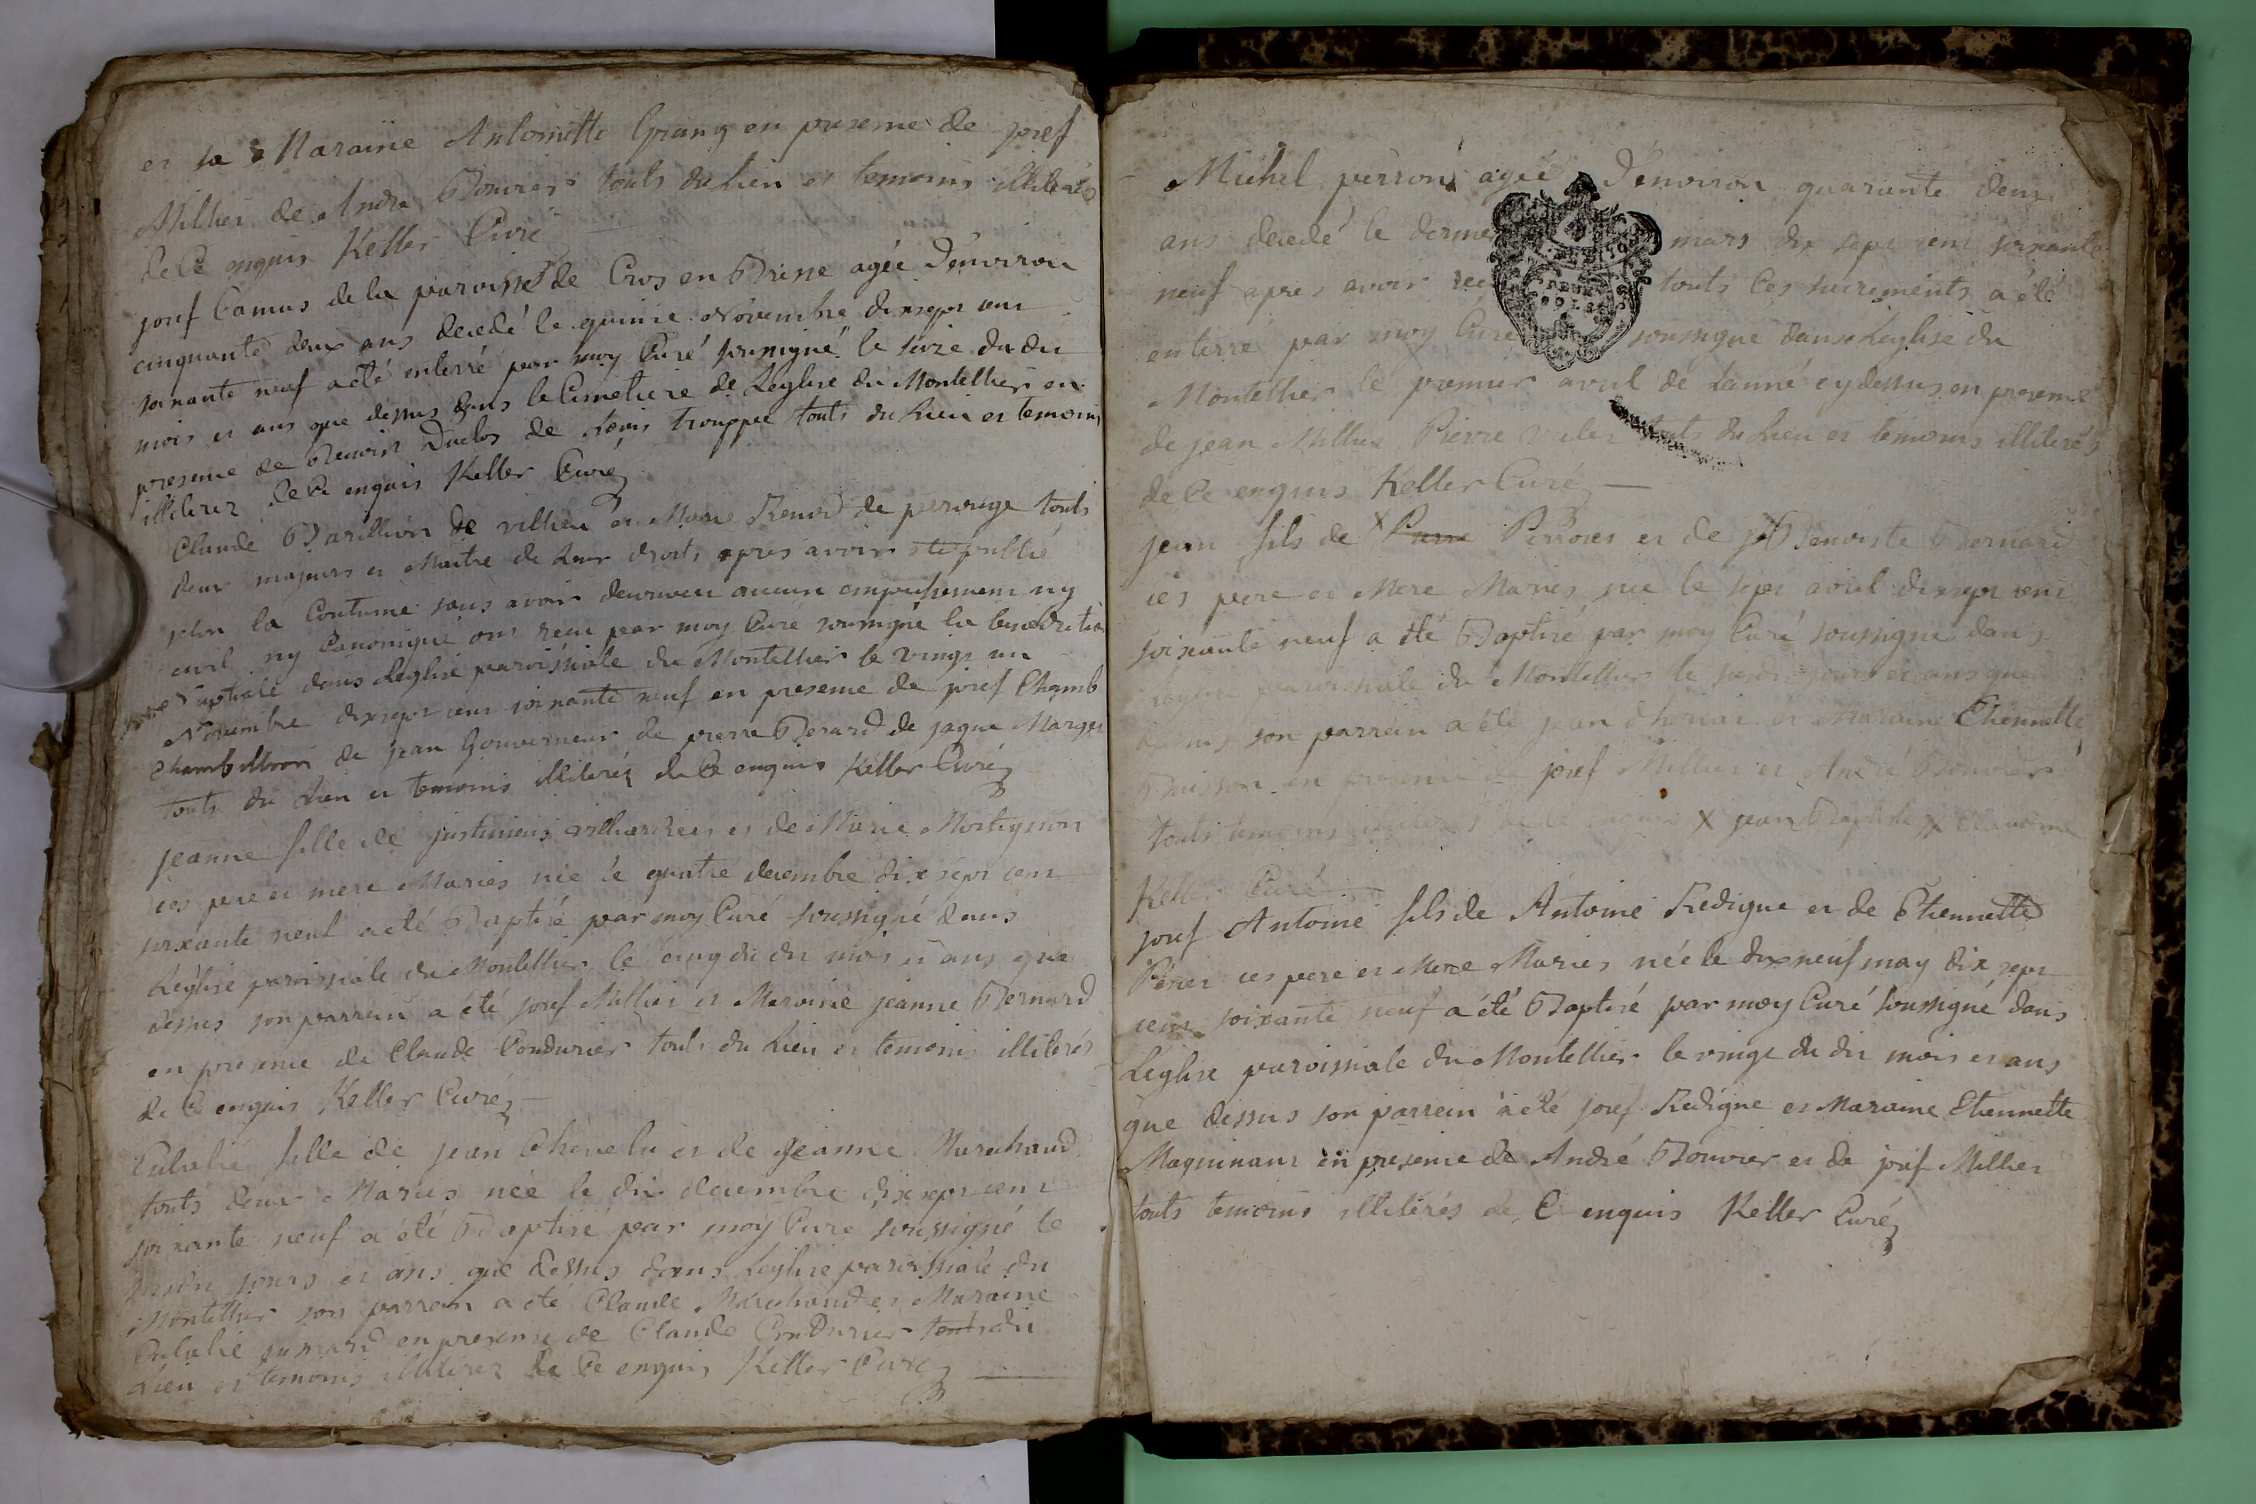 et sa Maraine Antoinette Grang en presence de josef
Millier de Andre Bouvier touts du Lieu et temoins illiteré
de Ce enquis Keller Curé
josef Camus de la paroisse de Cros en Bresse agée d'environ
cinquante deux ans decedé le quinze Novembre dixsept cent
soixante neuf a été enterré par moy Curé soussigné le seize du dit
mois et ans que dessus dans le Cimetiere de Leglise du Montellier en
presence de Benoist Duclos de Trouppe touts du Lieu et temoins
illiterez de Ce enquis Keller Curé
Claude Barillion de villieu et Marie Renard de perouge touts
deux majeurs et Maitre de Leur droits apres avoir publié
selon la Coutume sans avoir decouvert aucun empechement ny
civil ny Canonique ont recu par moy Curé soussigné la benediction
Nuptiale dans Leglise paroissiale du Montellier le vingt un
Novembre dixsept cent soixante neuf en presence de josef Chamb
Chambellion de jean Gouverneur de pierre Berard de jaque Marger
touts du Lieu et temoins illiteréz de Ce enquis Keller Curé
jeanne fille de et de Marie Martignon
ces pere et mere Mariés née le quatre decembre dix sept cent
soixante neuf a été Baptisé par moy Curé soussigné dans
Léglise paroissiale du Montellier le cinq du dit mois et ans que
dessus son parrein a été josef Millier et Maraine jeanne Bernard
en presence de Claude Condurier touts du Lieu et temoins illiterés
de Ce enquis Keller Curé
Eulalie fille de jean Chenelu et de jeanne Marchand
touts deux Mariés née le dix decembre dixsept cent
soixante neuf a été Baptisé par moy Curé soussigné le
jours et ans que dessus dans Leglise paroissiale du
Montellier son parrein a été Claude Marchand et Maraine
Eulalie jumard en presence de Claude Condurier touts du
Lieu et temoins illiterez de Ce enquis Keller Curé
Michel perron agée d'environ quarante deux
ans decedé le dernie mars dix sept cent soixante
neuf apres avoir rec touts les sacrements a été
enterré par moy Curé soussigné dans Leglise du
Montellier le premier avril de Lanné cy dessus en presence
de jean Millier Pierre touts du Lieu et temoins illiterés
de Ce enquis Keller Curé
jean fils de X Pierre Perroux et de Benoiste Bernard
ces pere et Mere Mariés née le sept avril dixsept cent
soixante neuf a été Baptisé par moy Curé soussigné dans
Leglise paroissiale du Montellier le jours et ans que
dessus son parrein a été jean et Maraine Etiennette
Buisson en presence de josef Millier et André Bouvier
touts temoins illiterés de Ce enquis X jean Baptiste X
Keller Curé
josef Antoine fils de Antoine Redigue et de Etiennette
Perier ces pere et Mere Mariés née le dix neuf may dix sept
cent soixante neuf a été Baptisé par moy Curé soussigné dans
Léglise paroissiale du Montellier le vingt du dit mois et ans
que dessus son parrein a été josef Redigue et Maraine Etiennette
Maquinant en presence de André Bouvier et de josef Millier
touts temoins illiterés de Ce enquis Keller Curé